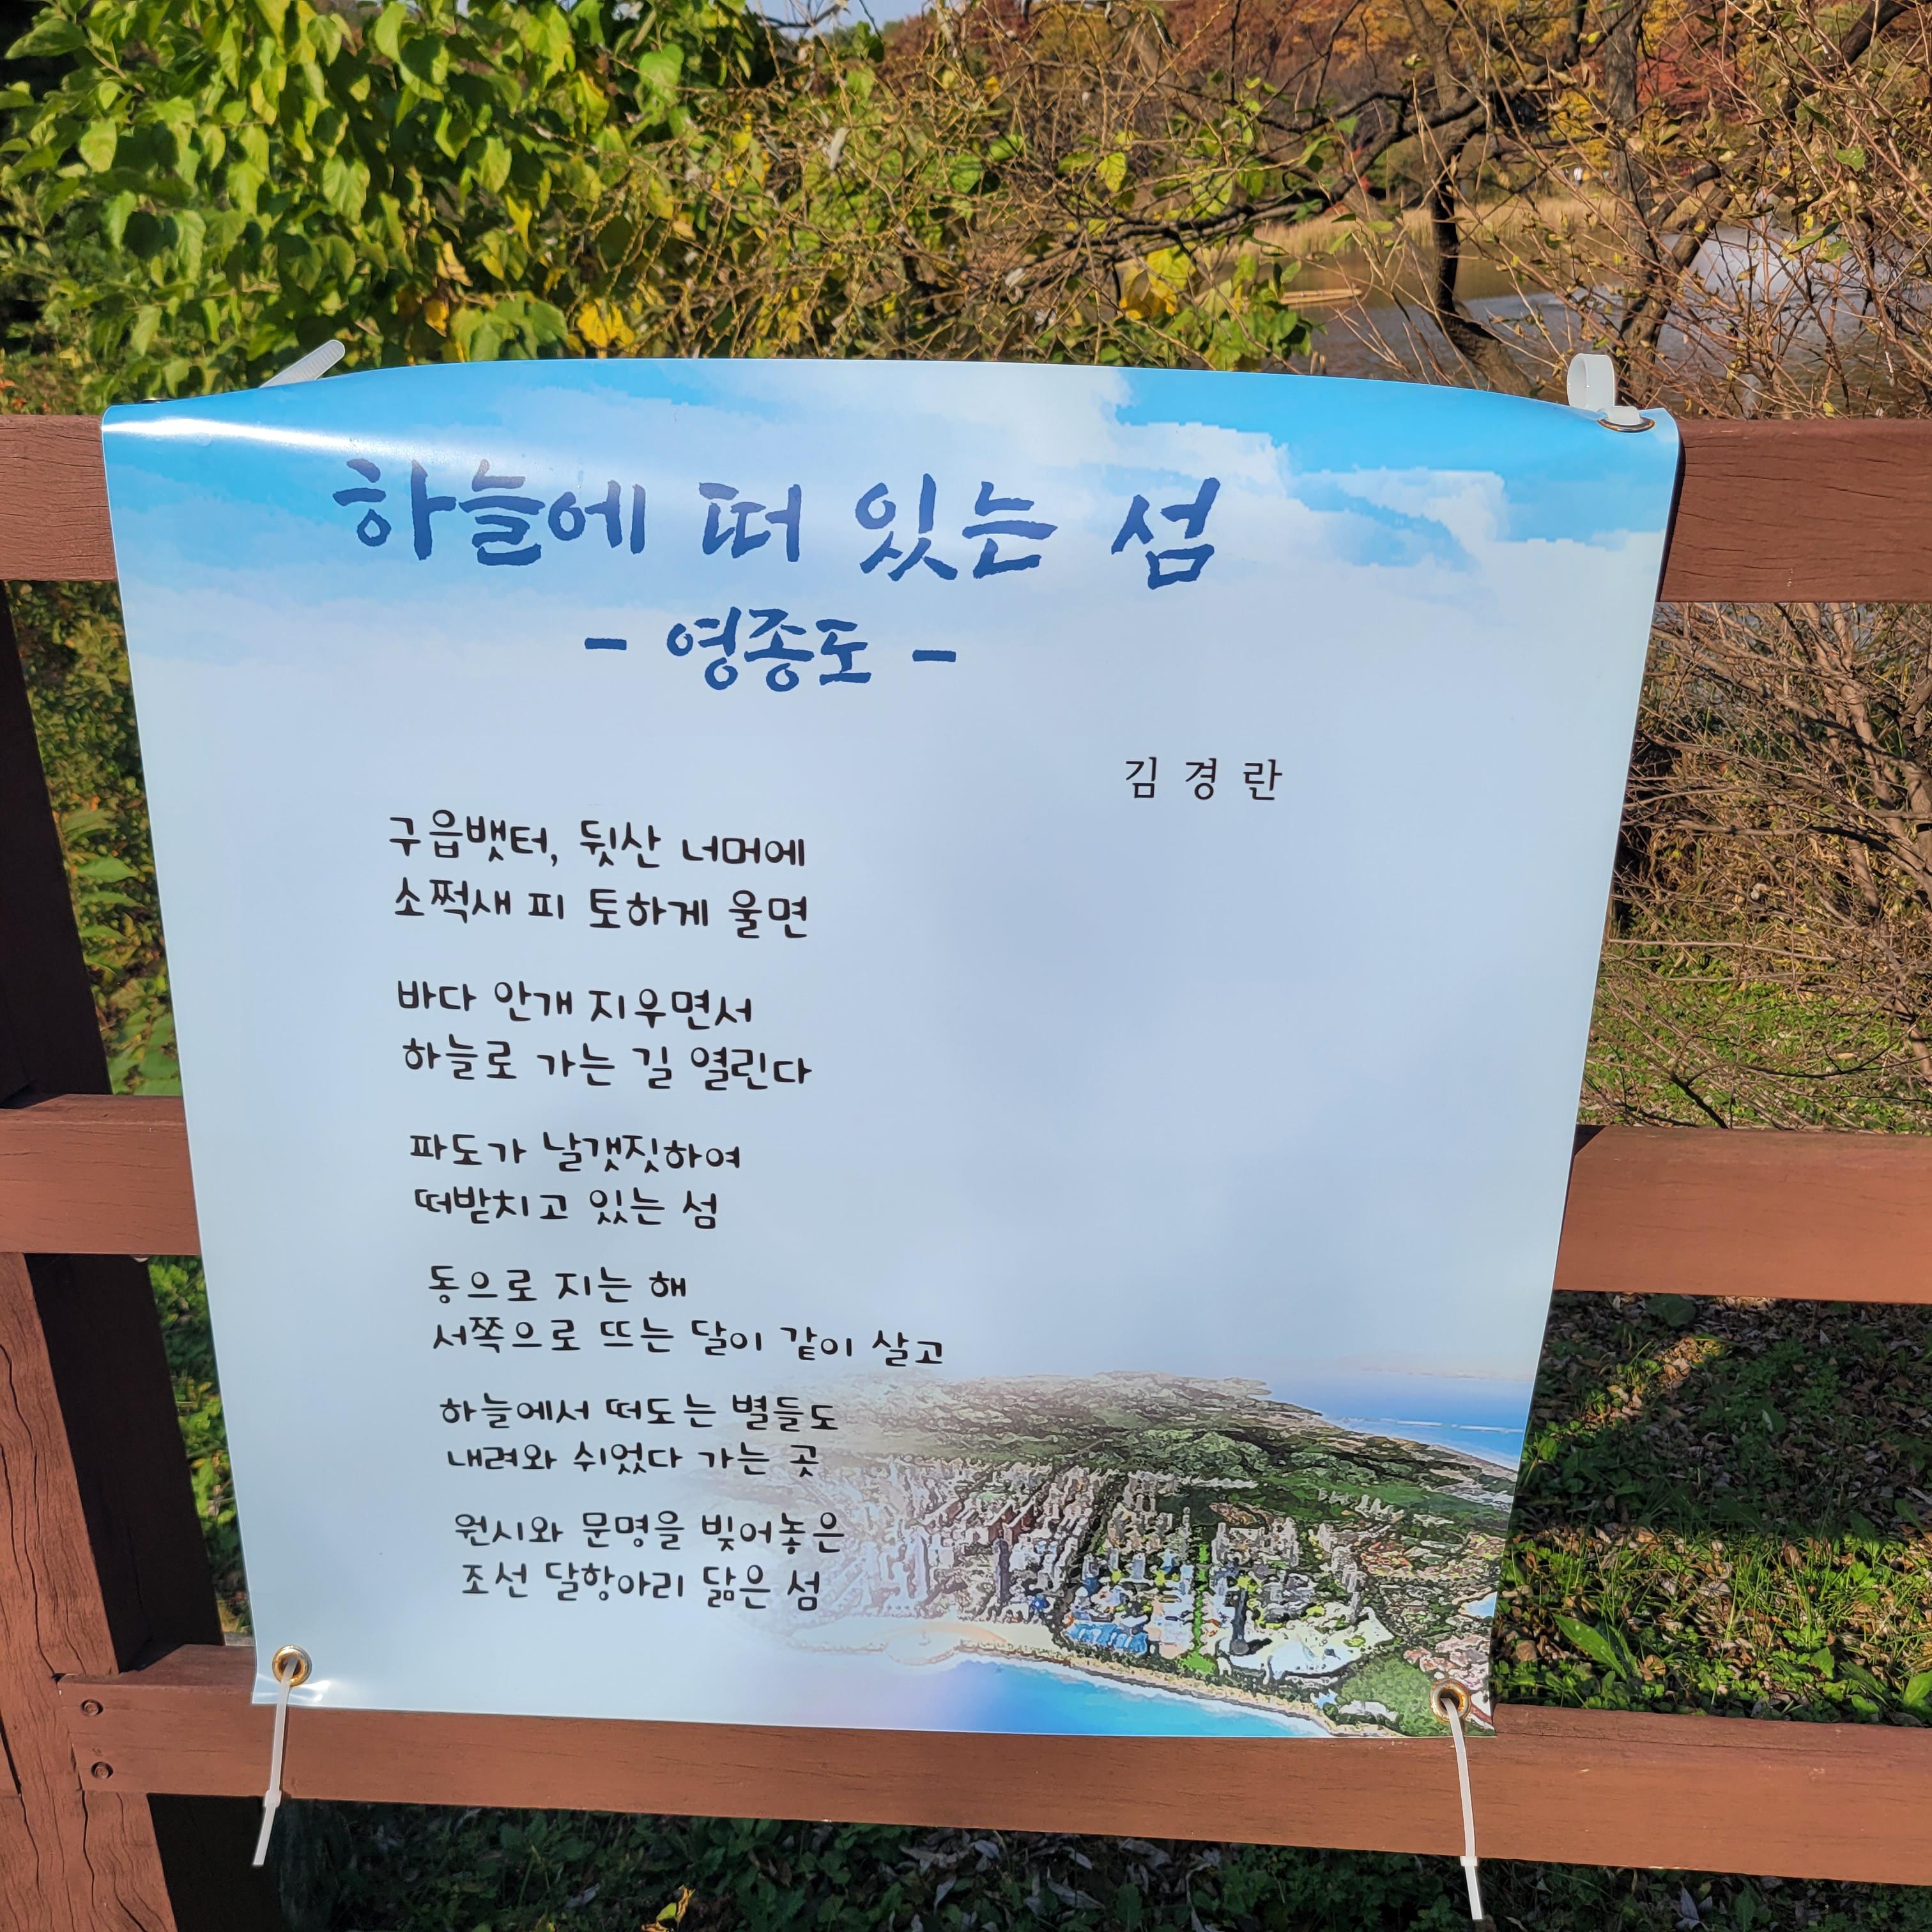 하늘에 떠 있는 섬
- 영종도 -
김 경 란
구읍뱃터, 뒷산 너머에
소쩍새 피 토하게 울면
바다 안개 지우면서
하늘로 가는 길 열린다
파도가 날갯짓하여
떠받치고 있는 섬
동으로 지는 해
서쪽으로 뜨는 달이 같이 살고
하늘에서 떠도는 별들도
내려와 쉬었다 가는 곳
원시와 문명을 빚어놓은
조선 달항아리 닮은 섬